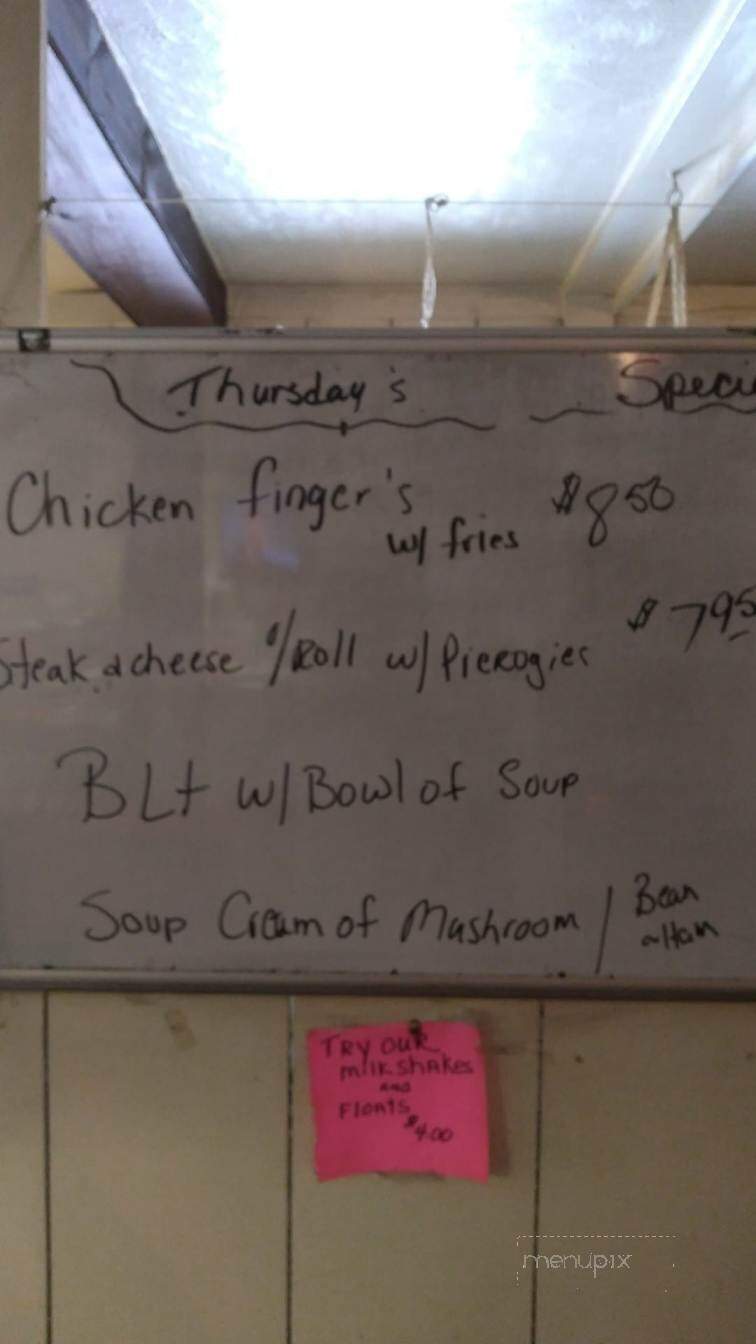 Thursday's Speci
Chicken finger's $8 50
w/ fries
Steak & cheese /Roll w/ Pierogies $ 7 95
BLt w/ Bowl of Soup
Soup Cream of Mushroom / Bean
Ham
TRY OUR
MILKSHAKES
AND
FLOATS
$4.00
menupix